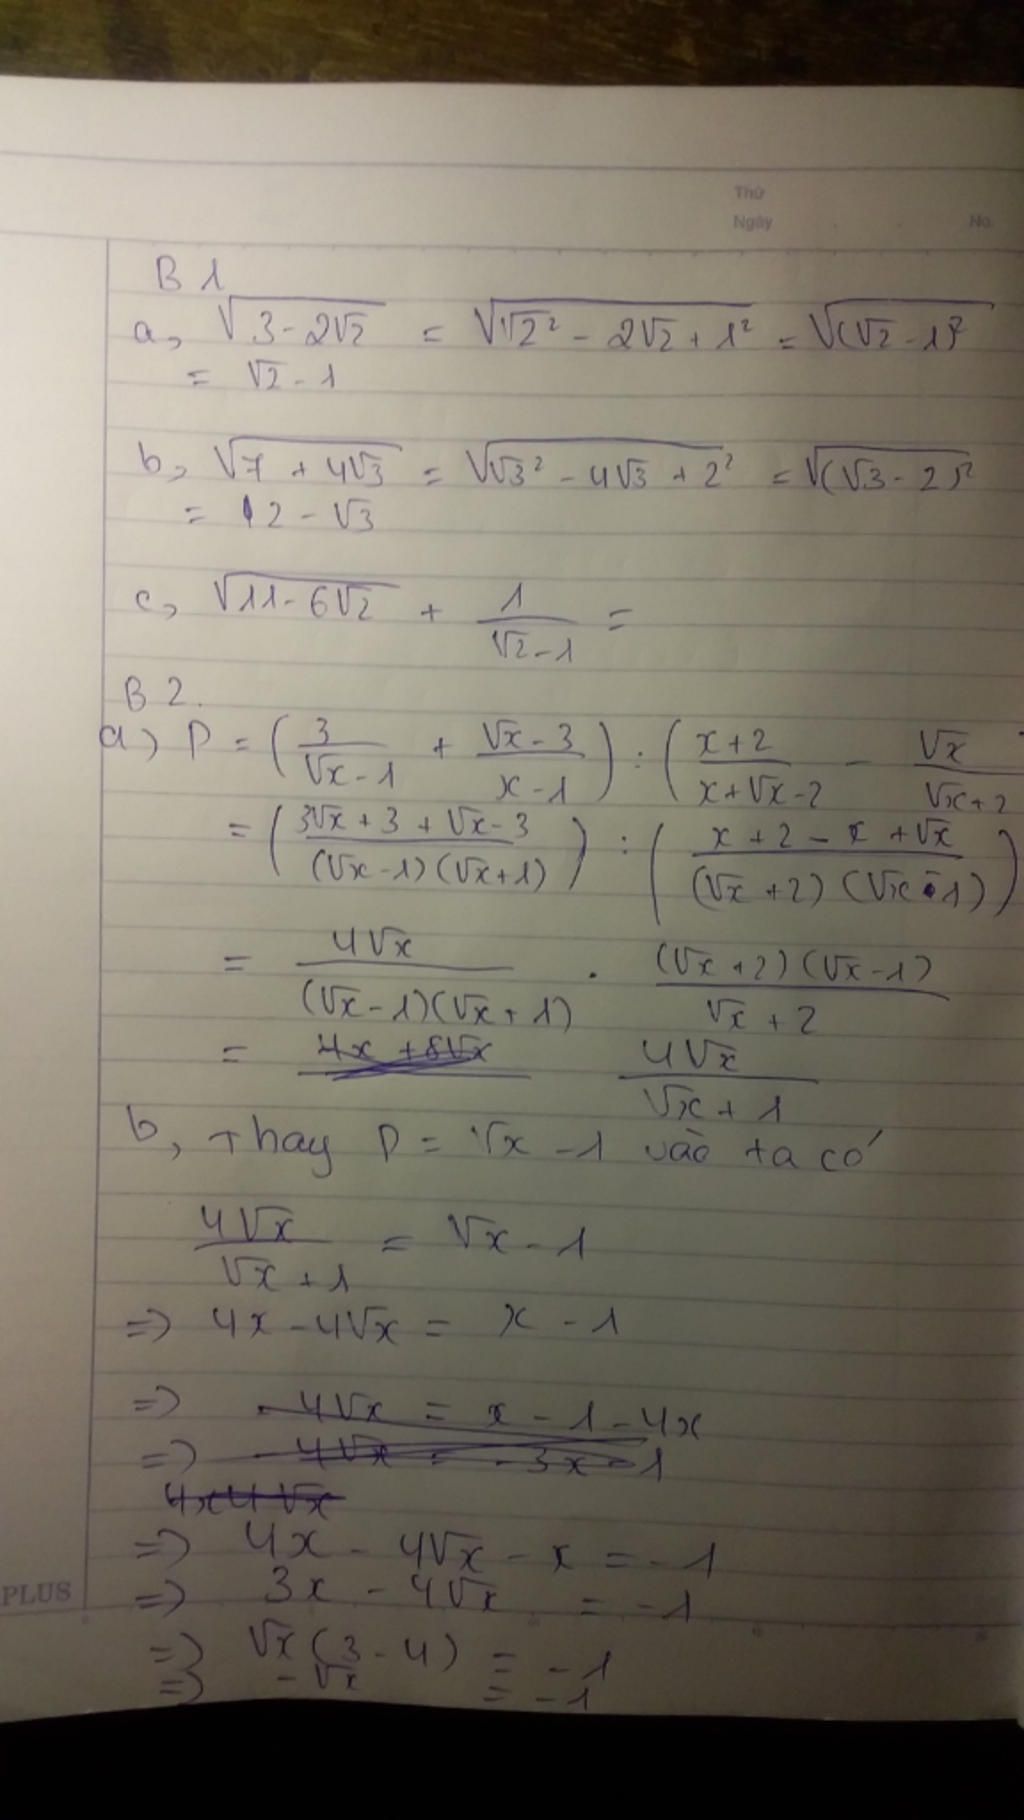 Thứ
Ngày No.
B 1
a, √(3 - 2√2) = √(√2² - 2√2 + 1²) = √((√2 - 1)²
= √2 - 1
b, √(7 + 4√3) = √(√3² - 4√3 + 2²) = √((√3 - 2)²
= 2 - √3
c, √(11 - 6√2) + 1/(√2 - 1) =
B 2.
a) P = (3/(√x - 1) + (√x - 3)/(x - 1)) : ((x + 2)/(x + √x - 2) - √x/(√x + 2)
= ((3√x + 3 + √x - 3)/((√x - 1)(√x + 1))) : ((x + 2 - x + √x)/((√x + 2)(√x - 1)))
= 4√x/((√x - 1)(√x + 1)) . ((√x + 2)(√x - 1))/(√x + 2)
= 4x + 8√x 4√x/(√x + 1)
b, Thay P = √x - 1 vào ta có
4√x/(√x + 1) = √x - 1
=> 4x - 4√x = x - 1
=> - 4√x = x - 1 - 4x
=> - 4√x = - 3x - 1
4x 4√x
=> 4x - 4√x - x = - 1
=> 3x - 4√x = - 1
=> √x (3 - 4) = - 1
=> - √x = - 1
PLUS